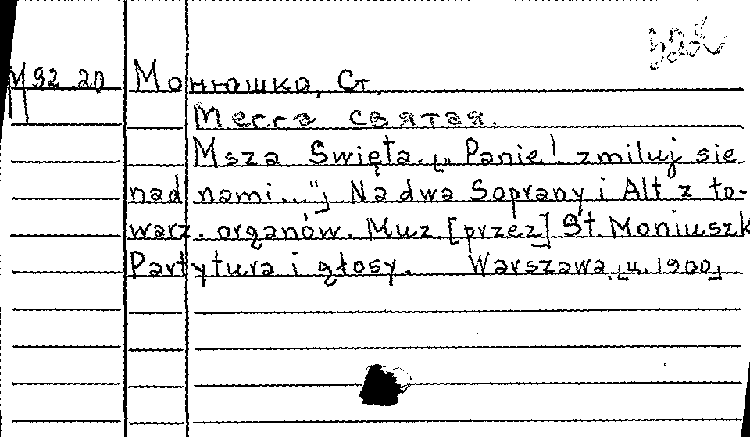 М 92 20 Монюшко, Ст.
Месса святая.
Msza Święta. [„Panie! zmiłuj się
nad nami..."] Na dwa Soprany i Alt z to-
warz. organów. Muz [przez] St Moniuszk
Partytura i głosy. Warszawa, [u. 1900]